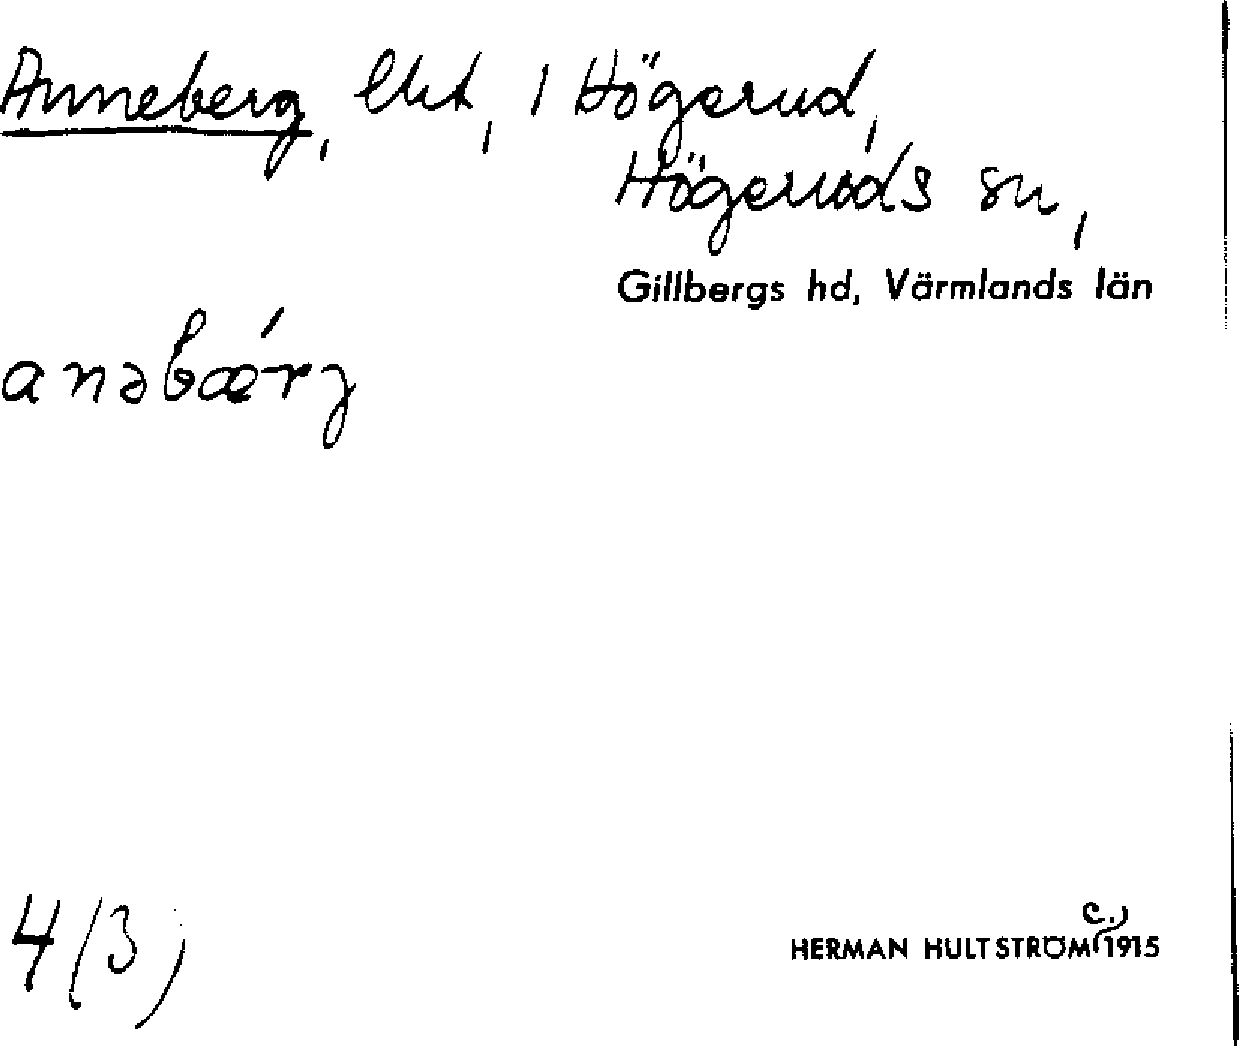 Anneberg, lht, i Högerud,
Högeruds sn,
Gillbergs hd, Värmlands län
anəbǽrj
4(3)
HERMAN HULTSTRÖM c. 1915